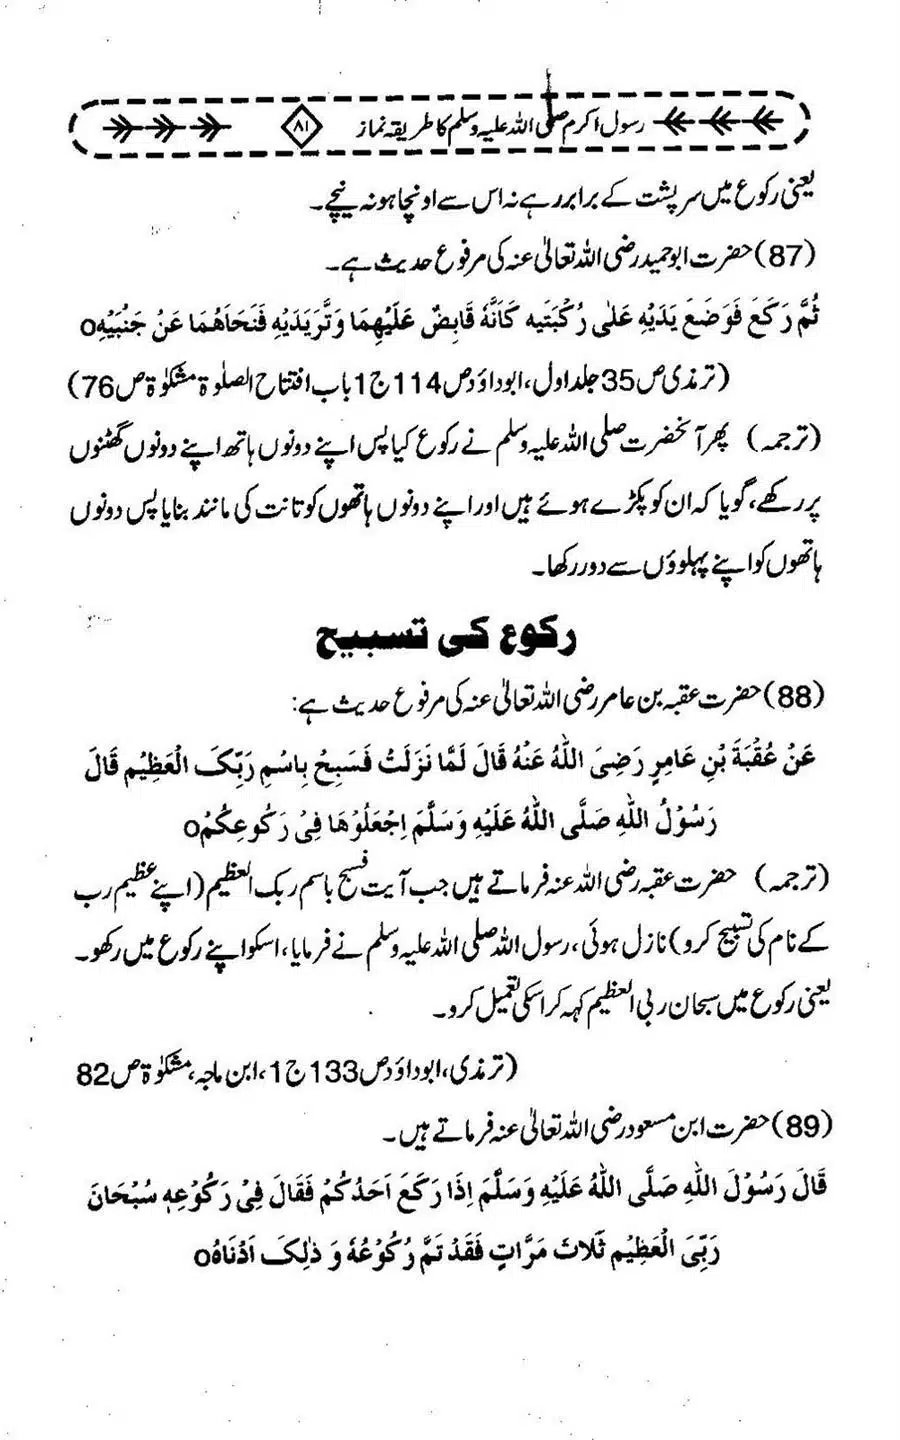 رسول اکرم صلی اللہ علیہ وسلم کا طریقہ نماز ۸۱
یعنی رکوع میں سر پشت کے برابر رہے نہ اس سے اونچا ہو نہ نیچے۔
(87) حضرت ابوحمید رضی اللہ تعالیٰ عنہ کی مرفوع حدیث ہے۔
ثُمَّ رَکَعَ فَوَضَعَ یَدَیْہِ عَلٰی رُکْبَتَیہ کَانَّہٗ قَابِضٌ عَلَیْھِمَا وَتَّرَیَدَیْہِ فَنَحَاھُمَا عَنْ جَنْبَیْہِo
(ترمذی ص 35 جلد اول، ابوداؤد ص 114 ج 1 باب افتتاح الصلوٰۃ مشکوٰۃ ص 76)
(ترجمہ) پھر آنحضرت صلی اللہ علیہ وسلم نے رکوع کیا پس اپنے دونوں ہاتھ اپنے دونوں گھٹنوں
پر رکھے، گویا کہ ان کو پکڑے ہوئے ہیں اور اپنے دونوں ہاتھوں کو تانت کی مانند بنایا پس دونوں
ہاتھوں کو اپنے پہلوؤں سے دور رکھا۔
رکوع کی تسبیح
(88) حضرت عقبہ بن عامر رضی اللہ تعالیٰ عنہ کی مرفوع حدیث ہے:
عَنْ عُقْبَۃَ بْنِ عَامِرٍ رَضِیَ اللّٰہُ عَنْہُ قَالَ لَمَّا نَزَلَتْ فَسَبِحْ بِاسْمِ رَبِّکَ الْعَظِیْم قَالَ
رَسُوْلُ اللّٰہِ صَلَّی اللّٰہُ عَلَیْہِ وَسَلَّمَ اِجْعَلُوْھَا فِیْ رَکُوعِکُمْo
(ترجمہ) حضرت عقبہ رضی اللہ عنہ فرماتے ہیں جب آیت فسبح باسم ربک العظیم (اپنے عظیم رب
کے نام کی تسبیح کرو) نازل ہوئی، رسول اللہ صلی اللہ علیہ وسلم نے فرمایا، اسکو اپنے رکوع میں رکھو۔
یعنی رکوع میں سبحان ربی العظیم کہہ کر اسکی تعمیل کرو۔
(ترمذی، ابوداؤد ص 133 ج 1، ابن ماجہ، مشکوٰۃ ص 82
(89) حضرت ابن مسعود رضی اللہ تعالیٰ عنہ فرماتے ہیں۔
قَالَ رَسُوْلَ اللّٰہِ صَلَّی اللّٰہُ عَلَیْہِ وَسَلَّمَ اِذَا رَکَعَ اَحَدُکُمْ فَقَالَ فِیْ رَکُوْعِہٖ سُبْحَانَ
رَبِّیَ الْعَظِیْمِ ثَلَاثَ مَرَّاتٍ فَقَدْ تَمَّ رُکُوْعُہٗ وَ ذٰلِکَ اَدْنَاہُo